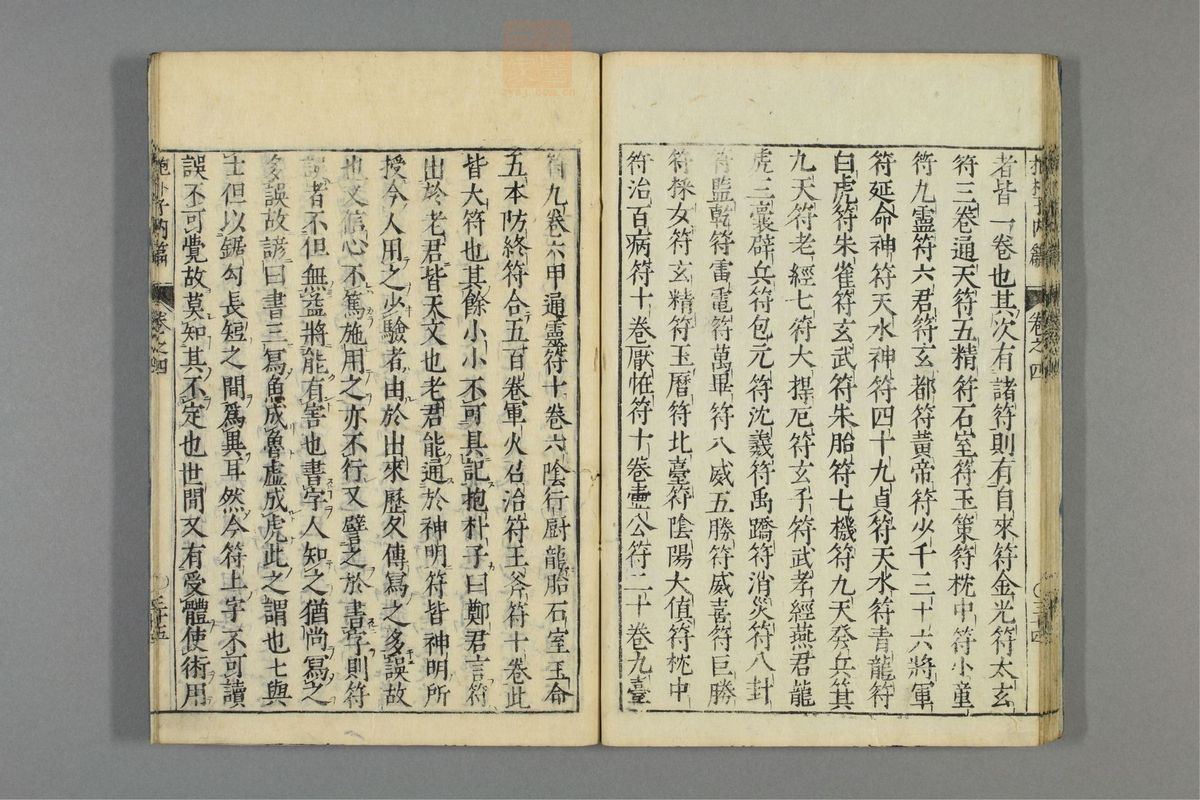 者皆一卷也其次有諸符則有自來符金光符太玄
符三卷通天符五精符石室符玉策符枕中符小童
符九靈符六君符玄都符黃帝符少千三十六將軍
符延命神符天水神符四十九真符天水符青龍符
白虎符朱雀符玄武符朱胎符七機符九天發兵符其
九天符老經七符大捍厄符玄子符武孝經燕君龍
虎三囊辟兵符包元符沈羲符禹蹻符消災符八卦
符監乾符雷電符萬畢符八威五勝符威喜符巨勝
符採女符玄精符玉曆符北臺符陰陽大值符枕中
符治百病符十卷厭怪符十卷壷公符二十卷九臺
符九卷六甲通靈符十卷六陰行厨龍胎石室玉命
五本防終符合五百卷軍火召治符王斧符十卷此
皆大符也其餘小小不可具記抱朴子曰鄭君言符
出於老君皆天文也老君能通於神明符皆神明所
授今人用之少驗者由於出來歷久傳寫之多誤故
也又信心不篤施用之亦不行又譬之於書字則符
誤者不但無益將能有害也書字人知之猶尚寫之
多誤故諺曰書三寫魚成魯虛成虎此之謂也七與
士但以鋸勾長短之間爲異耳然今符上字不可讀
誤不可覺故莫知其不定也世間又有受體使術用
抱朴子內篇 卷之四 三十五